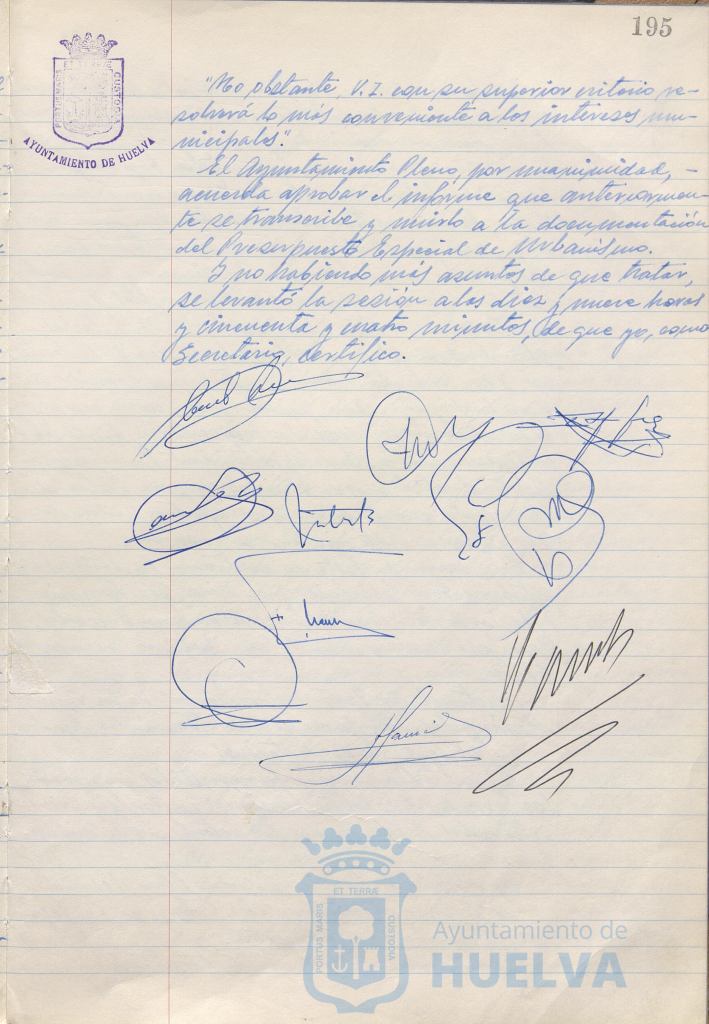 195
PORTUS MARIS ET TERRÆ CUSTODIA
AYUNTAMIENTO DE HUELVA
"No obstante, V.I. con su superior criterio re-
solverá lo más conveniente a los intereses mu-
nicipales".
El Ayuntamiento Pleno, por unanimidad, -
acuerda aprobar el informe que anteriormen-
te se transcribe y unirlo a la documentación
del Presupuesto Especial de Urbanismo.
Y no habiendo más asuntos de que tratar,
se levantó la sesión a las diez y nueve horas
y cincuenta y cuatro minutos, de que yo, como
Secretario, certifico.
PORTUS MARIS ET TERRÆ CUSTODIA
Ayuntamiento de
HUELVA